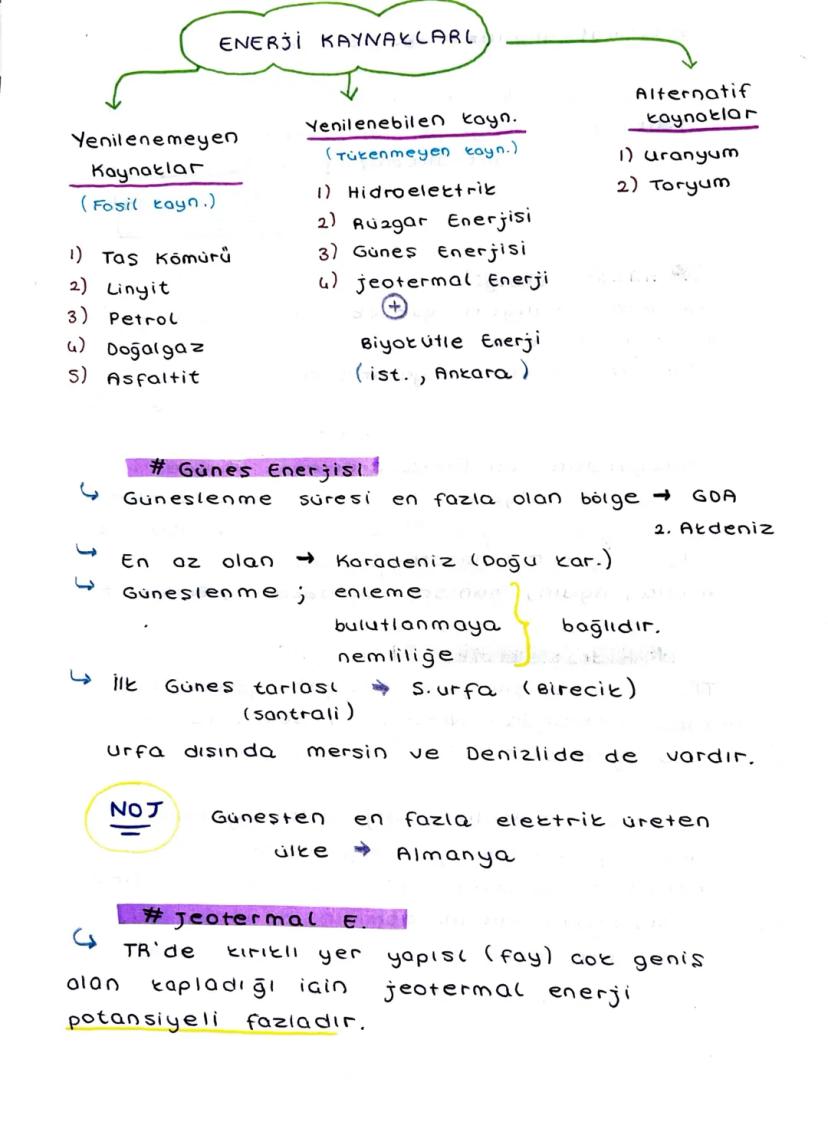 ENERJİ KAYNAKLARI
Yenilenemeyen
Kaynaklar
(Fosil kayn.)
1) Taş Kömürü
2) Linyit
3) Petrol
4) Doğalgaz
5) Asfaltit
Yenilenebilen kayn.
(Tükenmeyen kayn.)
1) Hidroelektrik
2) Rüzgar Enerjisi
3) Güneş Enerjisi
4) jeotermal Enerji
+
Biyokütle Enerji
(ist., Ankara)
Alternatif
kaynaklar
1) Uranyum
2) Toryum
# Güneş Enerjisi
↳ Güneşlenme süresi en fazla olan bölge → GDA
2. Akdeniz
↳ En az olan → Karadeniz (Doğu kar.)
↳ Güneşlenme ; enleme
bulutlanmaya } bağlıdır.
nemliliğe
↳ İlk Güneş tarlası → Ş.urfa (Birecik)
(santrali)
Urfa dışında mersin ve Denizlide de vardır.
NOT Güneşten en fazla elektrik üreten
ülke → Almanya
# Jeotermal E.
↳ TR'de kırıklı yer yapısı (fay) çok geniş
alan kapladığı için jeotermal enerji
potansiyeli fazladır.